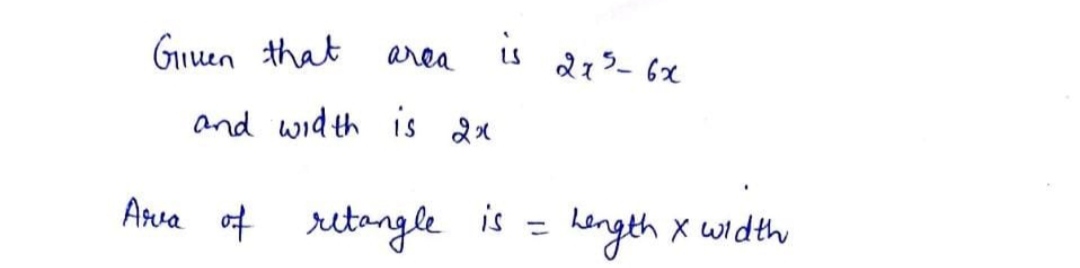 Given that area is 2x⁵- 6x
and width is 2x
Area of retangle is = Length x width